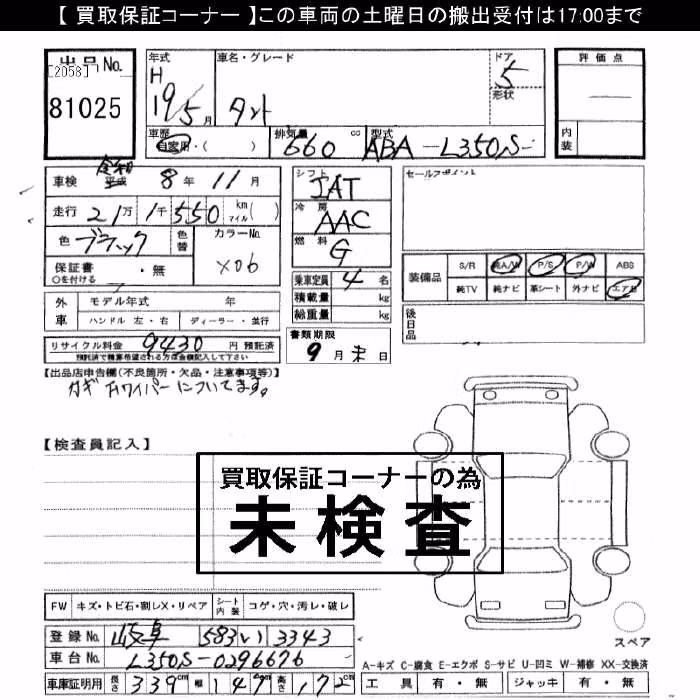 【 買取保証コーナー 】この車両の土曜日の搬出受付は17:00まで
出品No.
[2058]
81025
年式 H 19/5 月
車名・グレード タント
ドア 5
形状
評価点
内装
車歴 自家用・( )
排気量 660 cc
型式 ABA-L350S-
車検 令和 平成 8年 11月
走行 21万 1千 550 km マイル( )
色 ブラック 色替 カラーNo. X06
保証書 ○を付ける ・無
シフト IAT
冷房 AAC
燃料 G
乗車定員 4 名
積載量 kg
総重量 kg
セールスポイント
装備品 S/R 純A/W P/S P/W ABS
純TV 純ナビ 革シート 外ナビ エアB
外車 モデル年式 年
ハンドル 左・右 ディーラー・並行
後日品
リサイクル料金 9430 円 預託済
預託済で精算希望される方は金額記入して下さい
書類期限 9月末日
【出品店申告欄(不良箇所・欠品・注意事項等)】
カギ ワイパーについてます。
【検査員記入】
買取保証コーナーの為
未検査
FW キズ・トビ石・割レX・リペア シート内装 コゲ・穴・汚レ・破レ
スペア
登録No. 岐阜 583 い 3343
車台No. L350S-0296676
A-キズ C-腐食 E-エクボ S-サビ U-凹ミ W-補修 XX-交換済
車庫証明用 長さ 339cm 幅 147cm 高さ 172cm
工具 有・無 ジャッキ 有・無